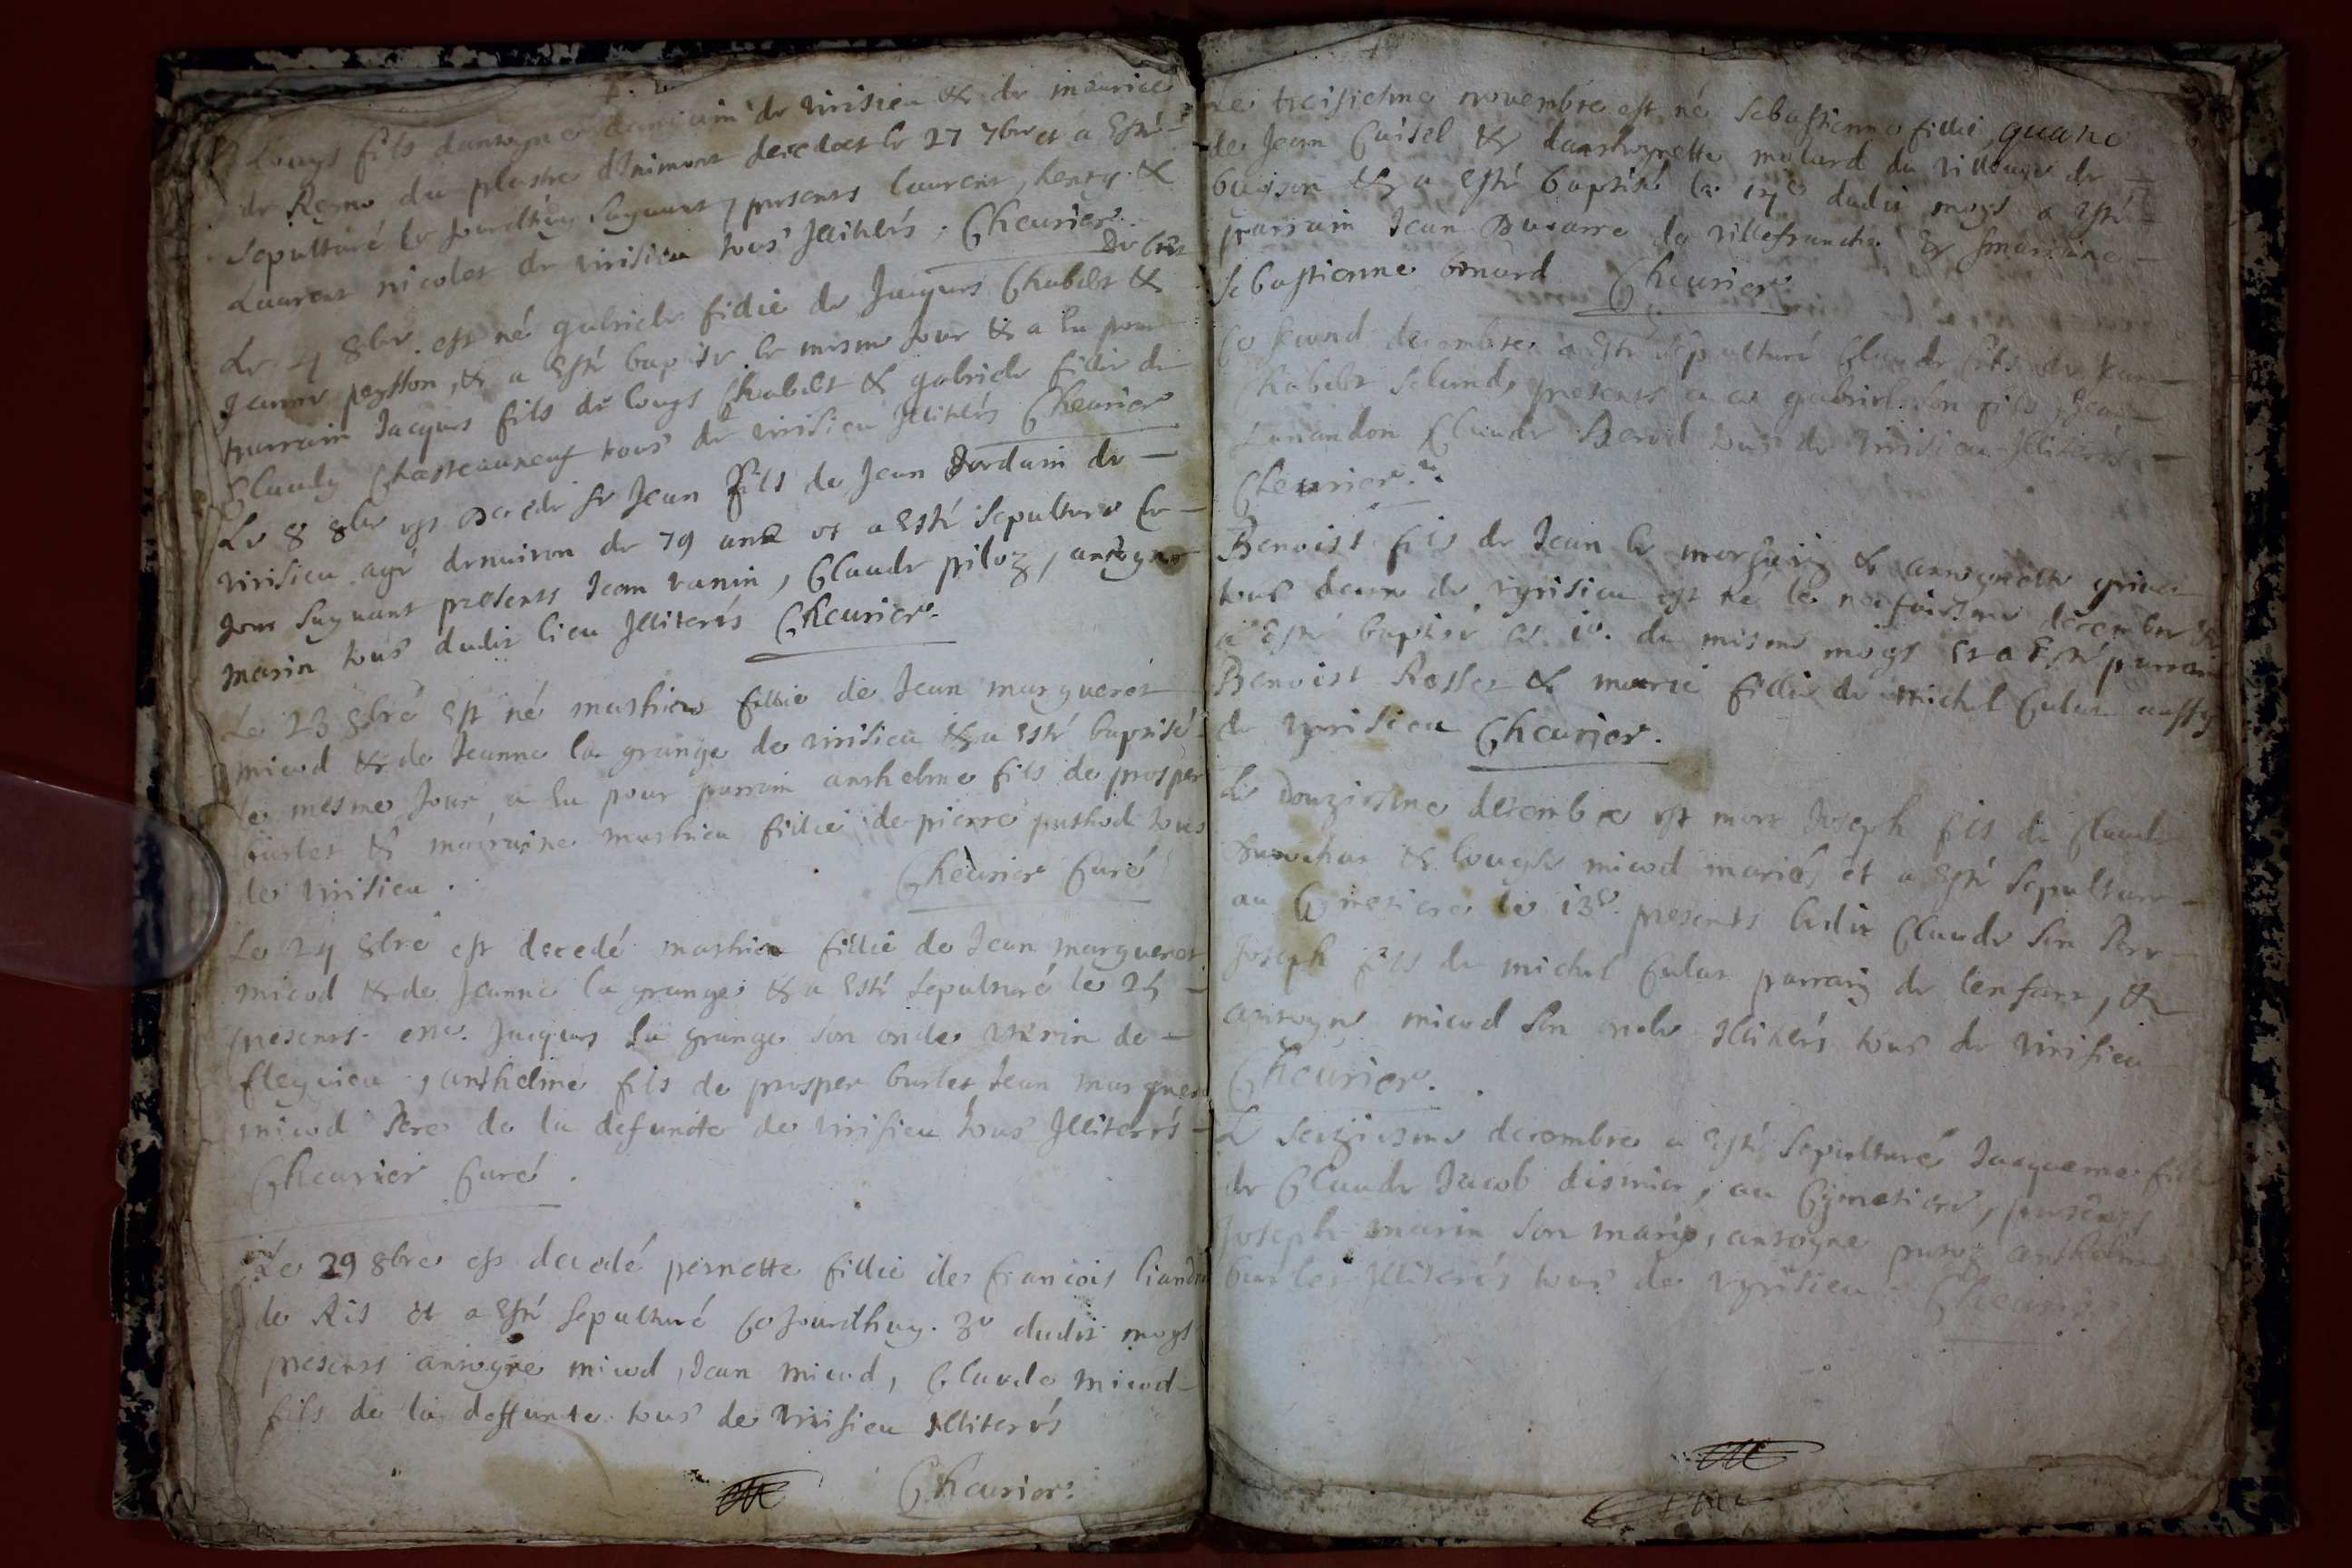 Louys fils dantoyne de virisieu & de maurice
de Reyno du plastre dInimont decedet le 27 7bre et a Esté
sepulturé le jourdhuy suyuant, presents laurent, henry &
Laurent nicolet de virisieu tous Jlliterés, Cheurier.
Le 4 8bre est né gabriele fillie de Jacques Chabert &
Jeanne peysson, & a Esté baptisé le mesme Jour & a Eu pour
parrain Jacques fils de louys Chabert & gabriele fillie de
Claudy Chasteauneuf tous de virisieu Jlliterés Cheurier
Le 8 8bre est Decede sr Jean fils de Jean Jordain de
virisieu agé denuiron de 79 ans et a Esté sepulture le
Jour suyuant presents Jean vanin, Claude piloz, antoyne
marin tous dudit lieu Jlliterés Cheurier.
Le 23 8bre Est né mathieu fillie de Jean margueret
miod & de Jeanne la grange de virisieu & a esté baptisé
le mesme Jour a Eu pour parrain anthelme fils de prosper
burlet & mairaine mathieu fillie de pierre puthod tous
de virisieu.
Cheurier Curé
Le 24 8bre est decedé mathieu fillie de Jean margueret
miod & de Jeanne la grange & a Esté sepulturé le 25
presents Jacques la grange son oncle de
fleyrieu, anthelme fils de prosper burlet Jean margueret
miod Pere de la defuncte de virisieu tous Jlliterés
Cheurier Curé.
Le 29 8bre est decedé pernette fillie de francois
de Ris et a Esté sepulturé Ce Jourdhuy. 30 dudit moys
presents antoyne miod, Jean miod, Claude miod
fils de la deffuncte tous de virisieu Jlliterés
Cheurier.
Le treisiesme novembre est né sebastienne fillie
de Jean Cuisel & danthoynette molard du villauge de
buisson & a Esté baptisé le 14e dudit moys a esté
parrain Jean Ducarre de villefranche & mairaine
sebastienne bonard Cheurier.
Ce second decembre a Esté sepulturé Claude fils de
Chabert presents a ce gabriel son fils, Jean
Claude tous de virisieu Jlliterés
Cheurier.
Benoist fils de Jean le & antoynette
tous deux de vyrisieu est né le neufuiesme decembre &
a Esté baptisé le 10. du mesme moys Et a Esté parrain
Benoist Rosset & marie fillie de michel Culat aussy
de vyrisieu Cheurier.
Le Douziesme decembre est mort Joseph fils de Claude
& louyse miod mariés et a Esté sepulture
au Cymetiere le 13e. presents ledit Claude son Pere
Joseph fils de michel Culat parrain de lenfant, &
antoyne miod son oncle Jlliterés tous de virisieu
Cheurier.
Le seziesme decembre a Esté sepulturé Jacqueme fillie
de Claude Jacob, au Cymetiere, presents
Joseph marin son mary, antoyne anthelme
burlet Jlliterés tous de vyrisieu Cheurier